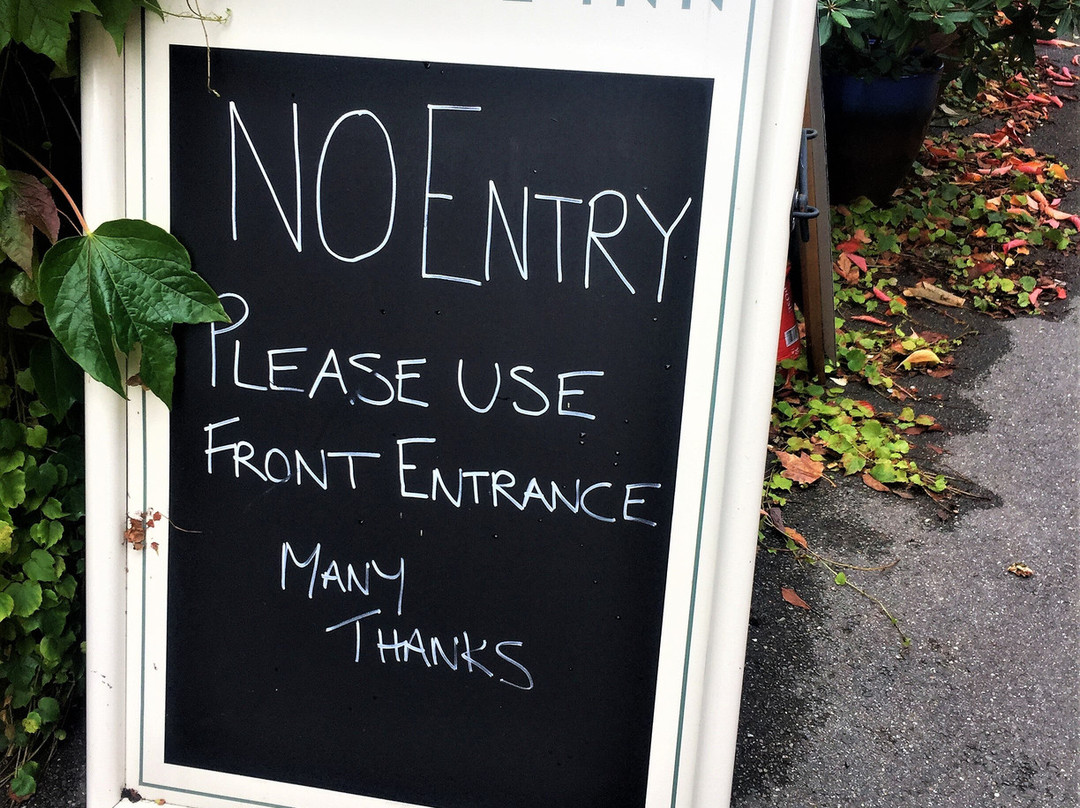 INN
NO ENTRY
PLEASE USE
FRONT ENTRANCE
MANY
THANKS